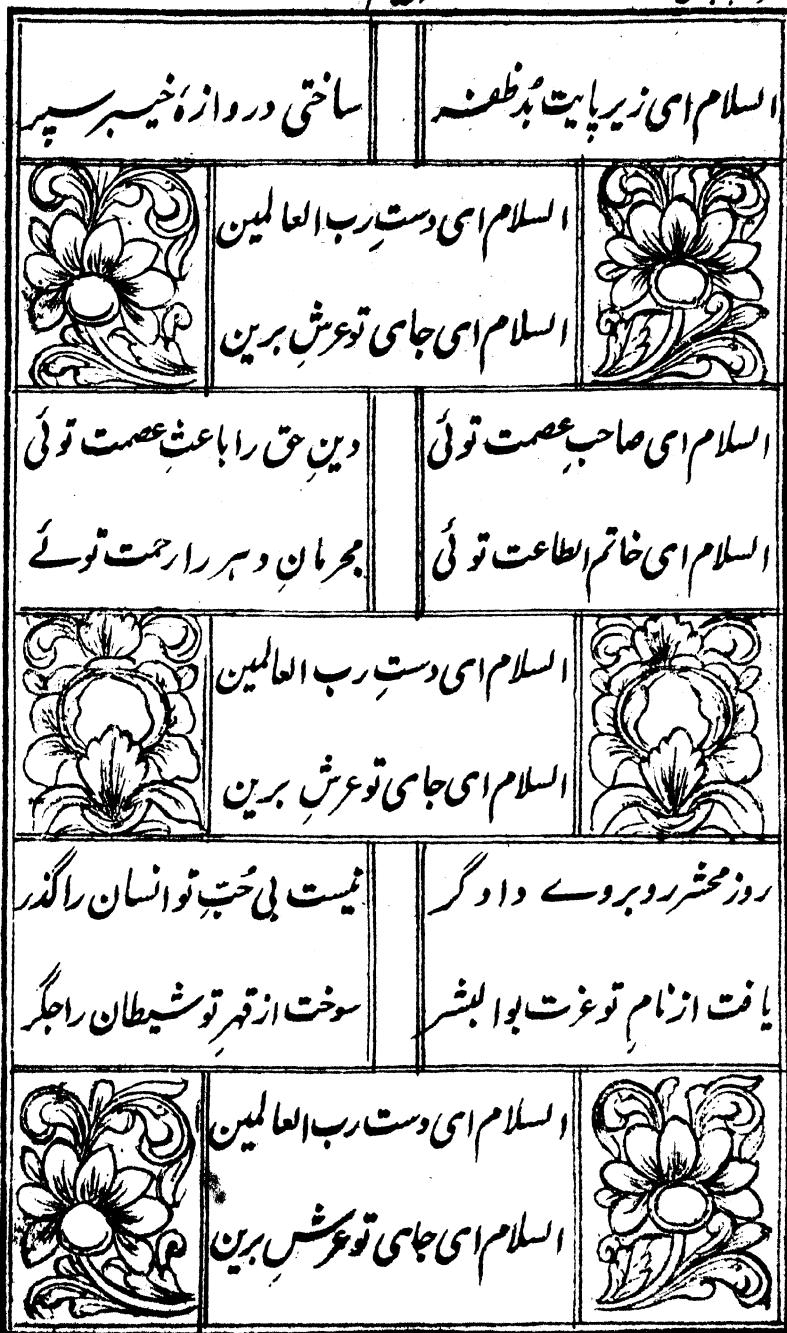 السلام ای زیر پایت بُد ظفر
ساختی دروازۂ خیبر سپر
السلام ای دستِ رب العالمین
السلام ای جای تو عرشِ برین
السلام ای صاحبِ عصمت توئی
دینِ حق را باعثِ عصمت توئی
السلام ای خاتم الطاعت توئی
مجرمانِ دہر را رحمت توئے
السلام ای دستِ رب العالمین
السلام ای جای تو عرشِ برین
روز محشر روبروے داوگر
نیست بی حُبِّ تو انسان را گذر
یافت از نامِ تو عزت بوالبشر
سوخت از قہرِ تو شیطان را جگر
السلام ای دست رب العالمین
السلام ای جای تو عرشِ برین